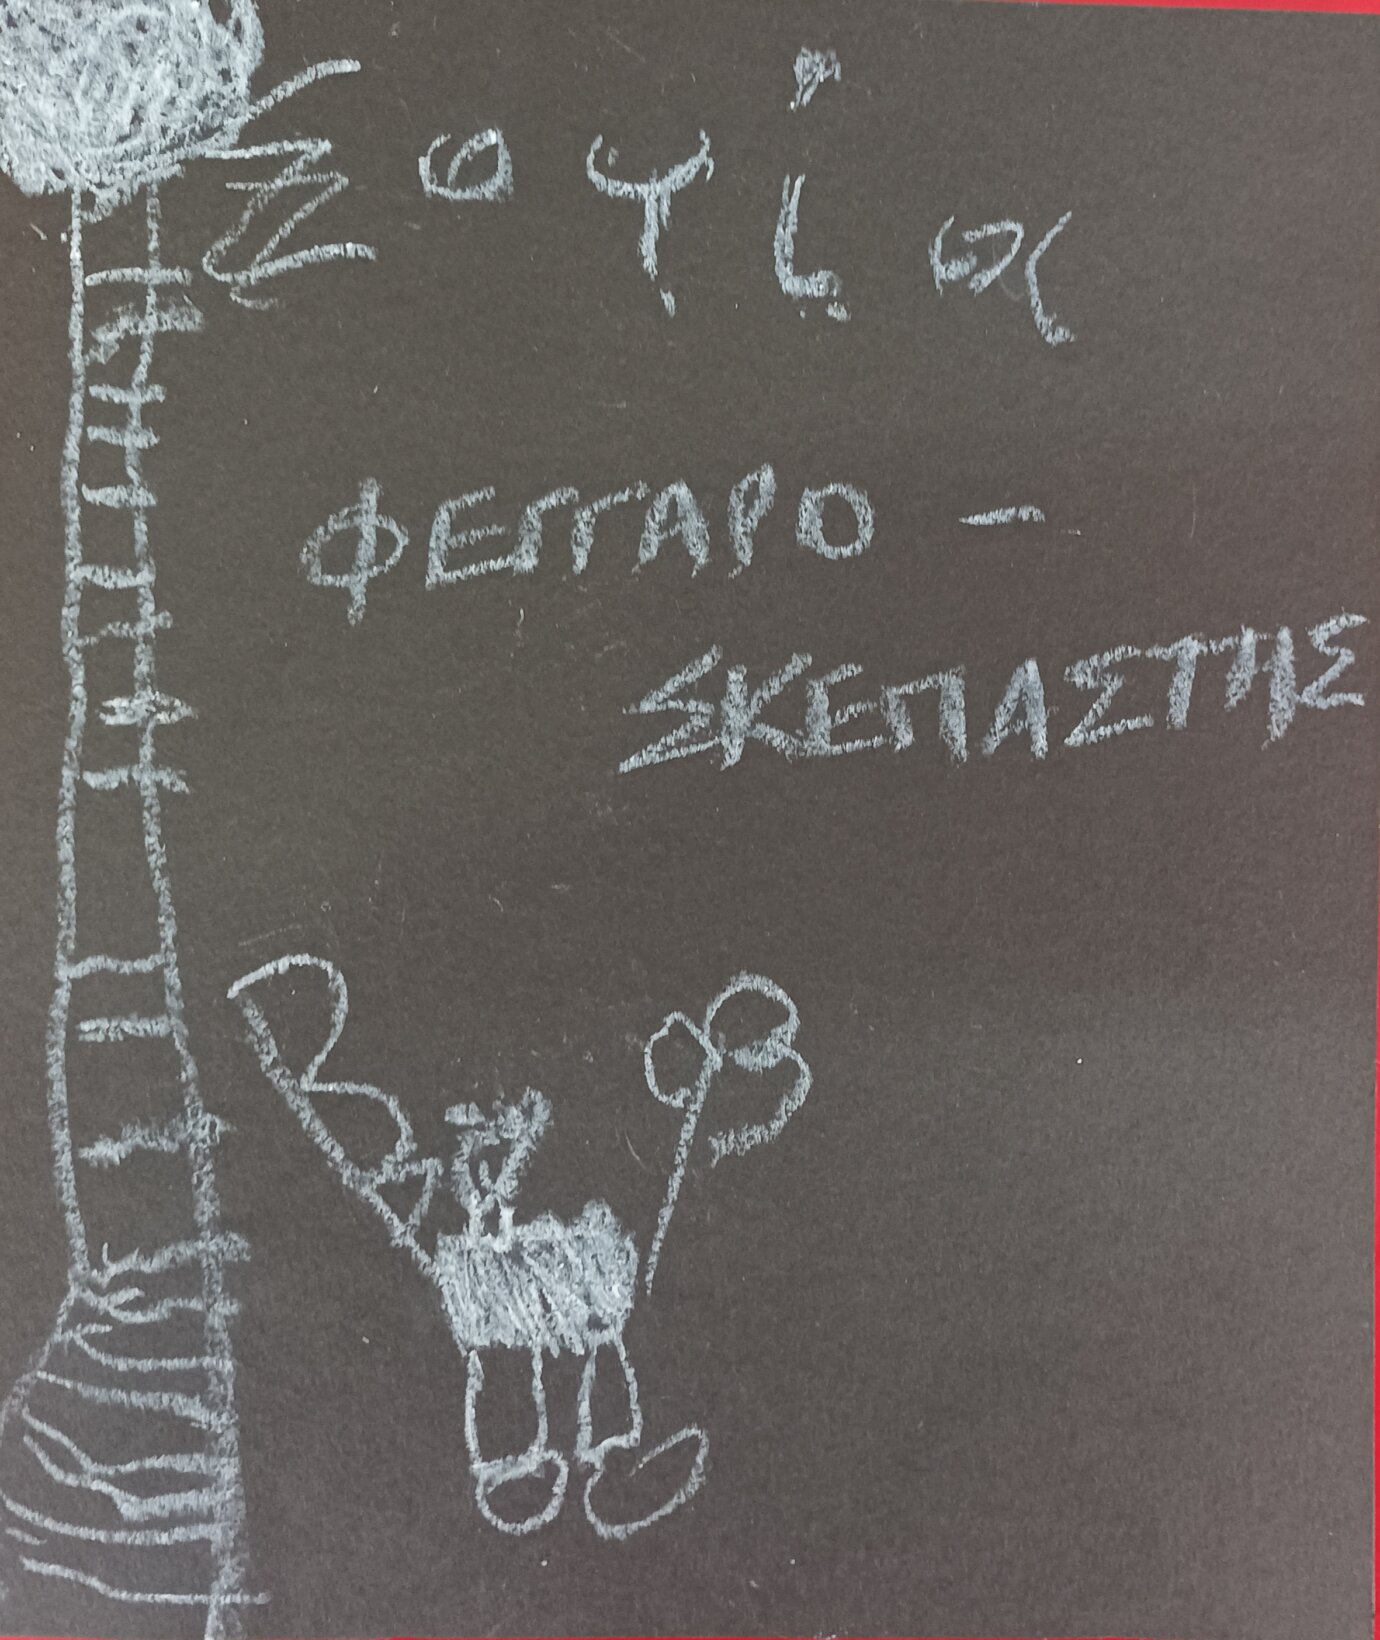 Σοφία
ΦΕΓΓΑΡΟ -
ΣΚΕΠΑΣΤΗΣ